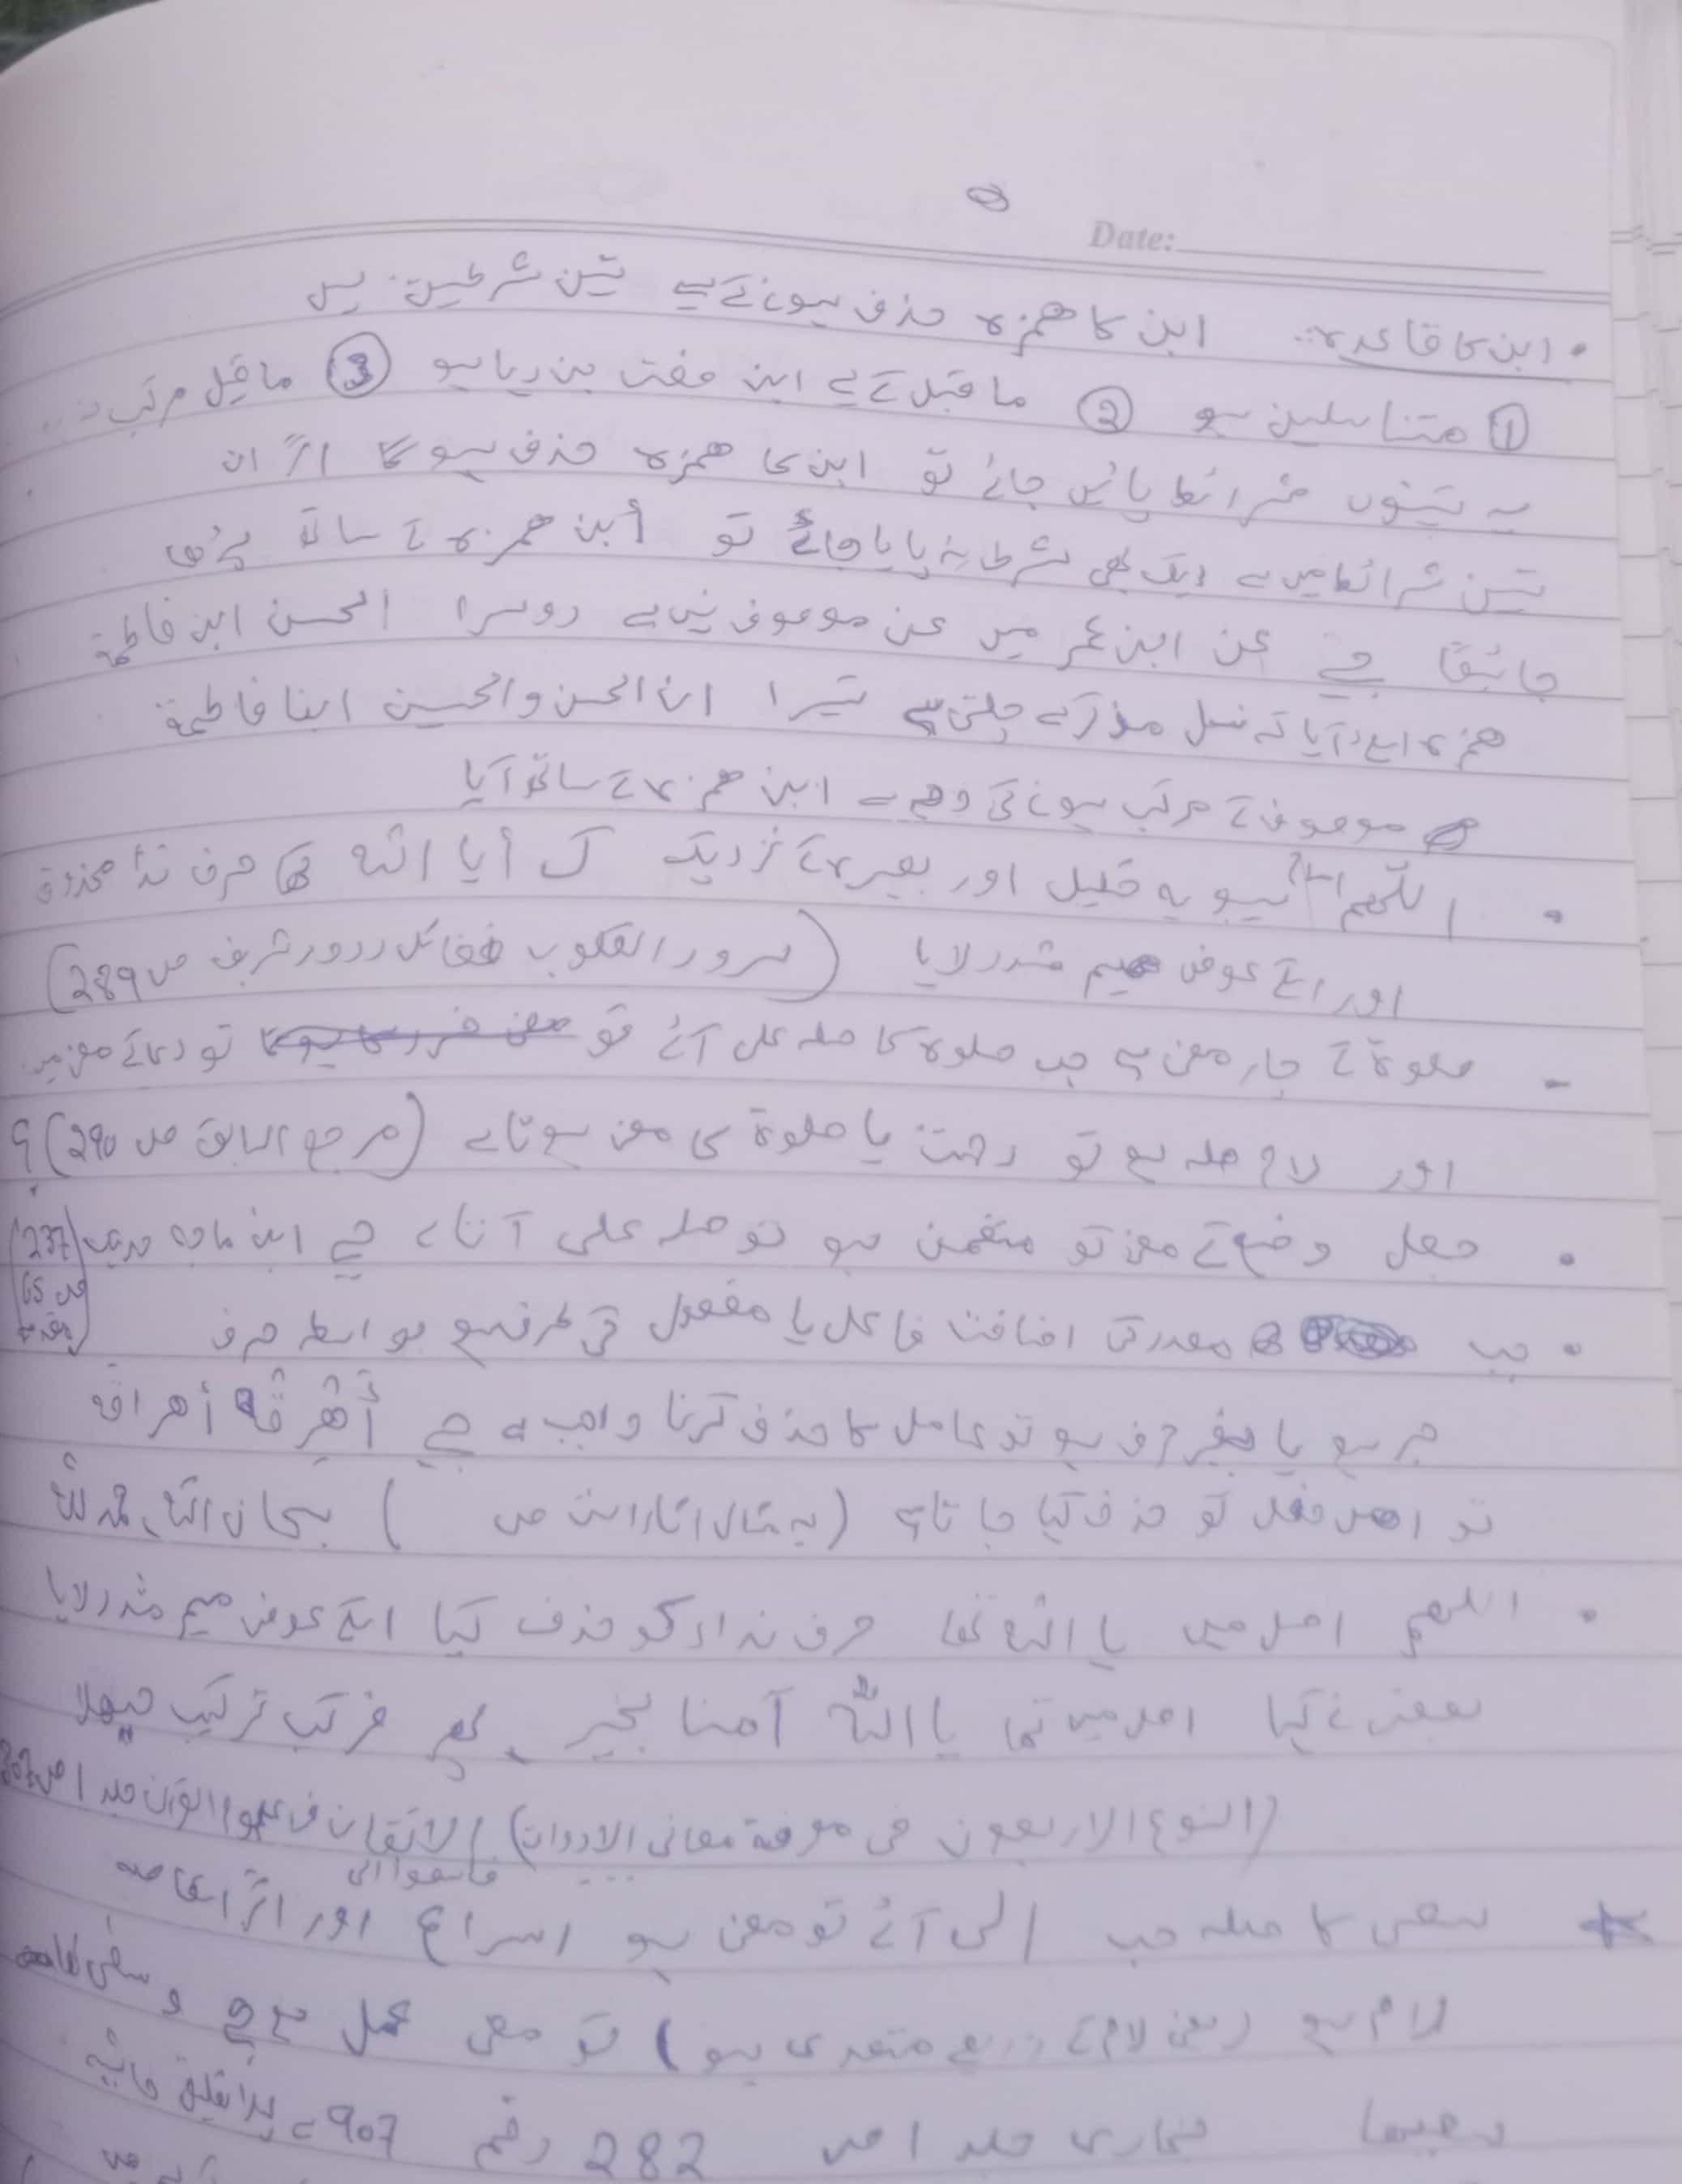 Date:
• ابن کا قاعدہ: ابن کا ھمزہ حذف ہونے کےلیے تین شرطیں ہیں
① متناسلین ہو ② ماقبل کےلیے ابن صفت بن رہا ہو ③ ماقبل مرکب نہ
یہ تینوں شرائط پائیں جائے تو ابن کا ھمزہ حذف ہوگا اگر ان
تین شرائط میں سے ایک بھی شرط نہ پایا جائے تو أبن ھمزہ کے ساتھ پڑھا
جائیگا جیسے عن ابن عمر میں عن موصوف نہیں ہے دوسرا الحسن ابن فاطمة
ھمزہ آیا کہ نسل مذکر سے چلتی ہے تیسرا ان الحسن والحسین ابنا فاطمة
موصوف کے مرکب ہونے کی وجہ سے ابن ھمزہ کے ساتھ آیا
• اللّٰھم سیبویہ خلیل اور بصیرہ کے نزدیک کہ أیا اللہ تھا حرف ندا محذوف
اور اسکے عوض میم مشدد لایا (سرور القلوب فضائل درود شریف ص 289)
- صلوۃ کے چار معنی ہے جب صلوۃ کا صلہ علی آئے تو تو دعا کے معنی میں
اور لام صلہ ہو تو رحمت یا صلوۃ کی معنی ہوتا ہے (مرجع السابق ص 290)
• جعل وضع کے معنی کو متضمن ہو تو صلہ علی آتا ہے جیسے ابن ماجہ حدیث (237)
ص 65
مقدمہ
• جب مصدر کی اضافت فاعل یا مفعول کی طرف ہو بواسطہ حرف
جر ہو یا بغیر حرف ہو تو عامل کا حذف کرنا واجب ہے جیسے أُهْرِقُهُ أهراقه
تو اصل فعل کو حذف کیا جاتا ہے (یہ مثال اثار السنن ص ) سبحان اللہ، حمد للہ
• اللھم اصل میں یا اللہ تھا حرف ندا کو حذف کیا اسکے عوض میم مشدد لایا
بعض نے کہا اصل میں تھا یا اللّٰہ آمنا بخیر، پھر مرکب ترکیب حیھلا
(النوع الاربعون فی معرفة معانی الادوات) الاتقان فی علوم القران جلد 1 ص
فاسعوا الی
★ سعی کا صلہ جب إلی آئے تو معنی ہو اسراع اور اگر اسکا صلہ
لام ہو (یعنی لام کے ذریعے متعدی ہو) تو معنی عمل ہے و سعی لھا
سعیھا بخاری جلد 1 ص 282 رقم 907 حاشیہ